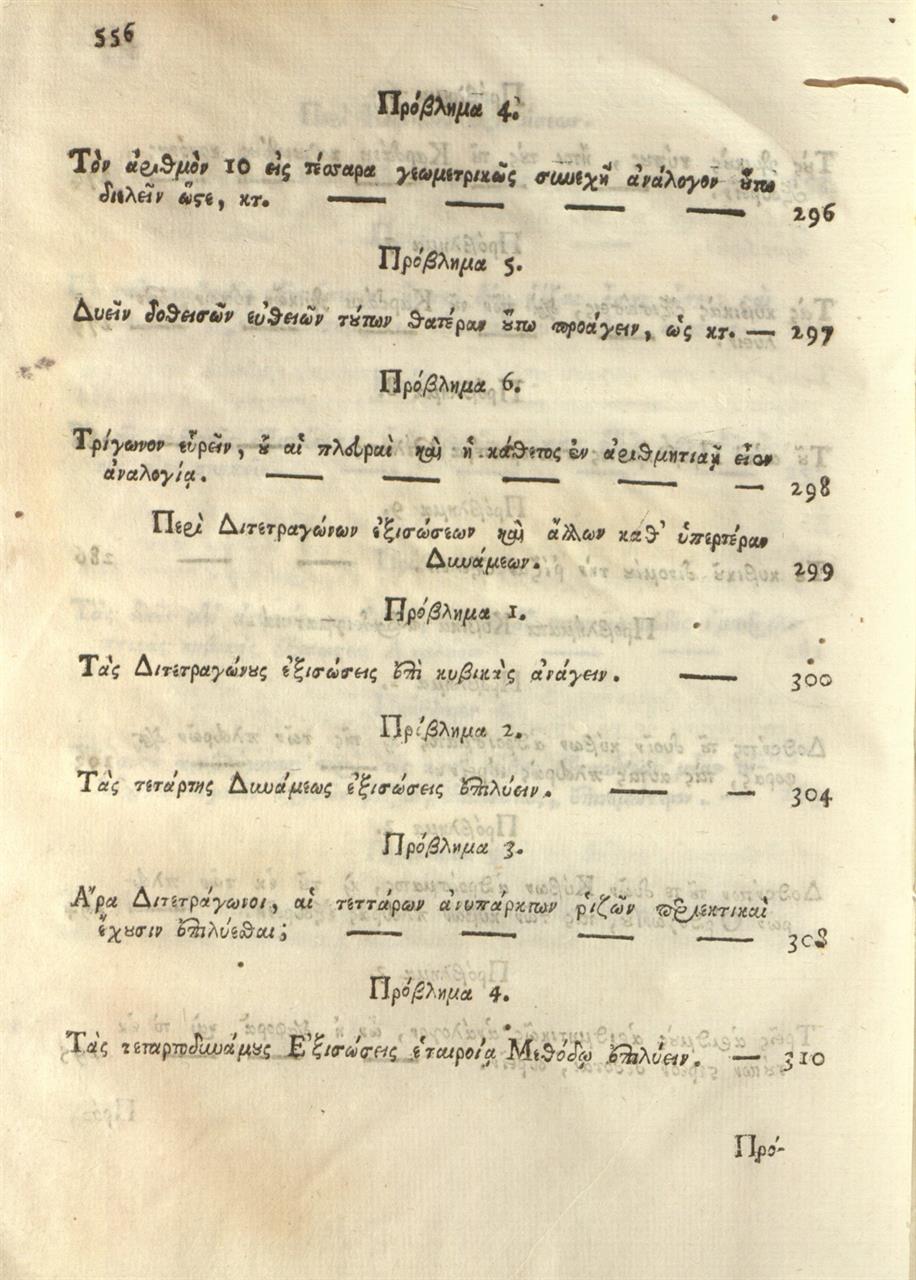 556
Πρόβλημα 4.
Τὸν ἀριθμὸν 10 εἰς τέσσαρα γεωμετρικῶς συνεχῆ ἀνάλογον ὕτω
διελεῖν ὥςε, κτ. — — — — 296
Πρόβλημα 5.
Δυεῖν δοθεισῶν εὐθειῶν τύπων θατέραν ὕτω προάγειν, ὡς κτ. — 297
Πρόβλημα 6.
Τρίγωνον εὑρεῖν, ὗ αἱ πλευραὶ καὶ ἡ κάθετος ἐν ἀριθμητικῇ εἶεν
ἀναλογίᾳ. — — — — — 298
Περὶ Διτετραγώνων ἐξισώσεων καὶ ἄλλων καθ' ὑπερτέραν
Δυνάμεων. 299
Πρόβλημα 1.
Τὰς Διτετραγώνυς ἐξισώσεις ἐπὶ κυβικὰς ἀνάγειν. — 300
Πρόβλημα 2.
Τὰς τετάρτης Δυνάμεως ἐξισώσεις ἐπιλύειν. — — 304
Πρόβλημα 3.
Ἆρα Διτετράγωνοι, αἱ τεττάρων ἀνυπάρκτων ῥιζῶν περιεκτικαὶ
ἔχυσιν ἐπιλύεσθαι; — — — — 308
Πρόβλημα 4.
Τὰς τεταρτοδυνάμυς Ἐξισώσεις ἑταιροίᾳ Μεθόδῳ ἐπιλύειν. — 310
Πρό-